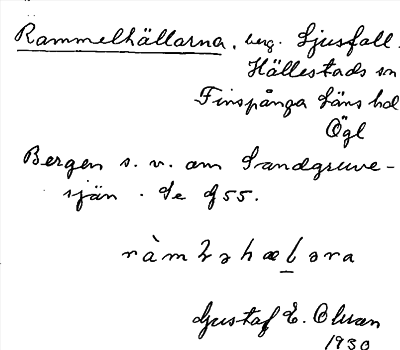 Rammelhällarna, berg. Ljusfall.
Hällestads sn
Finspånga läns hd
Ögl
Bergen s. v. om Sandgruve-
sjön. Se G 55.
ràmḷəhæḷəra
Gustaf E. Olsson
1930